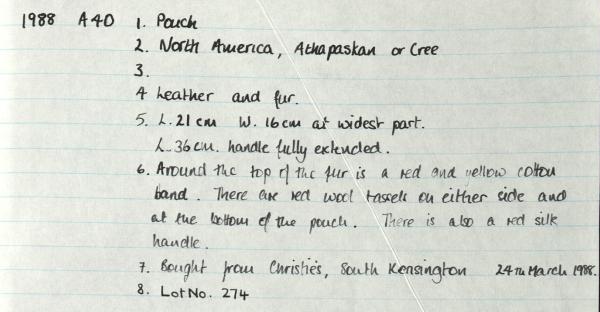 1988 A40 1. Pouch
2. North America, Athapaskan or Cree
3.
4 Leather and fur.
5. L. 21 cm W. 16 cm at widest part.
L. 36 cm. handle fully extended.
6. Around the top of the fur is a red and yellow cotton
band. There are red wool tassels on either side and
at the bottom of the pouch. There is also a red silk
handle.
7. Bought from Christie's, South Kensington 24TH March 1988.
8. Lot No. 274